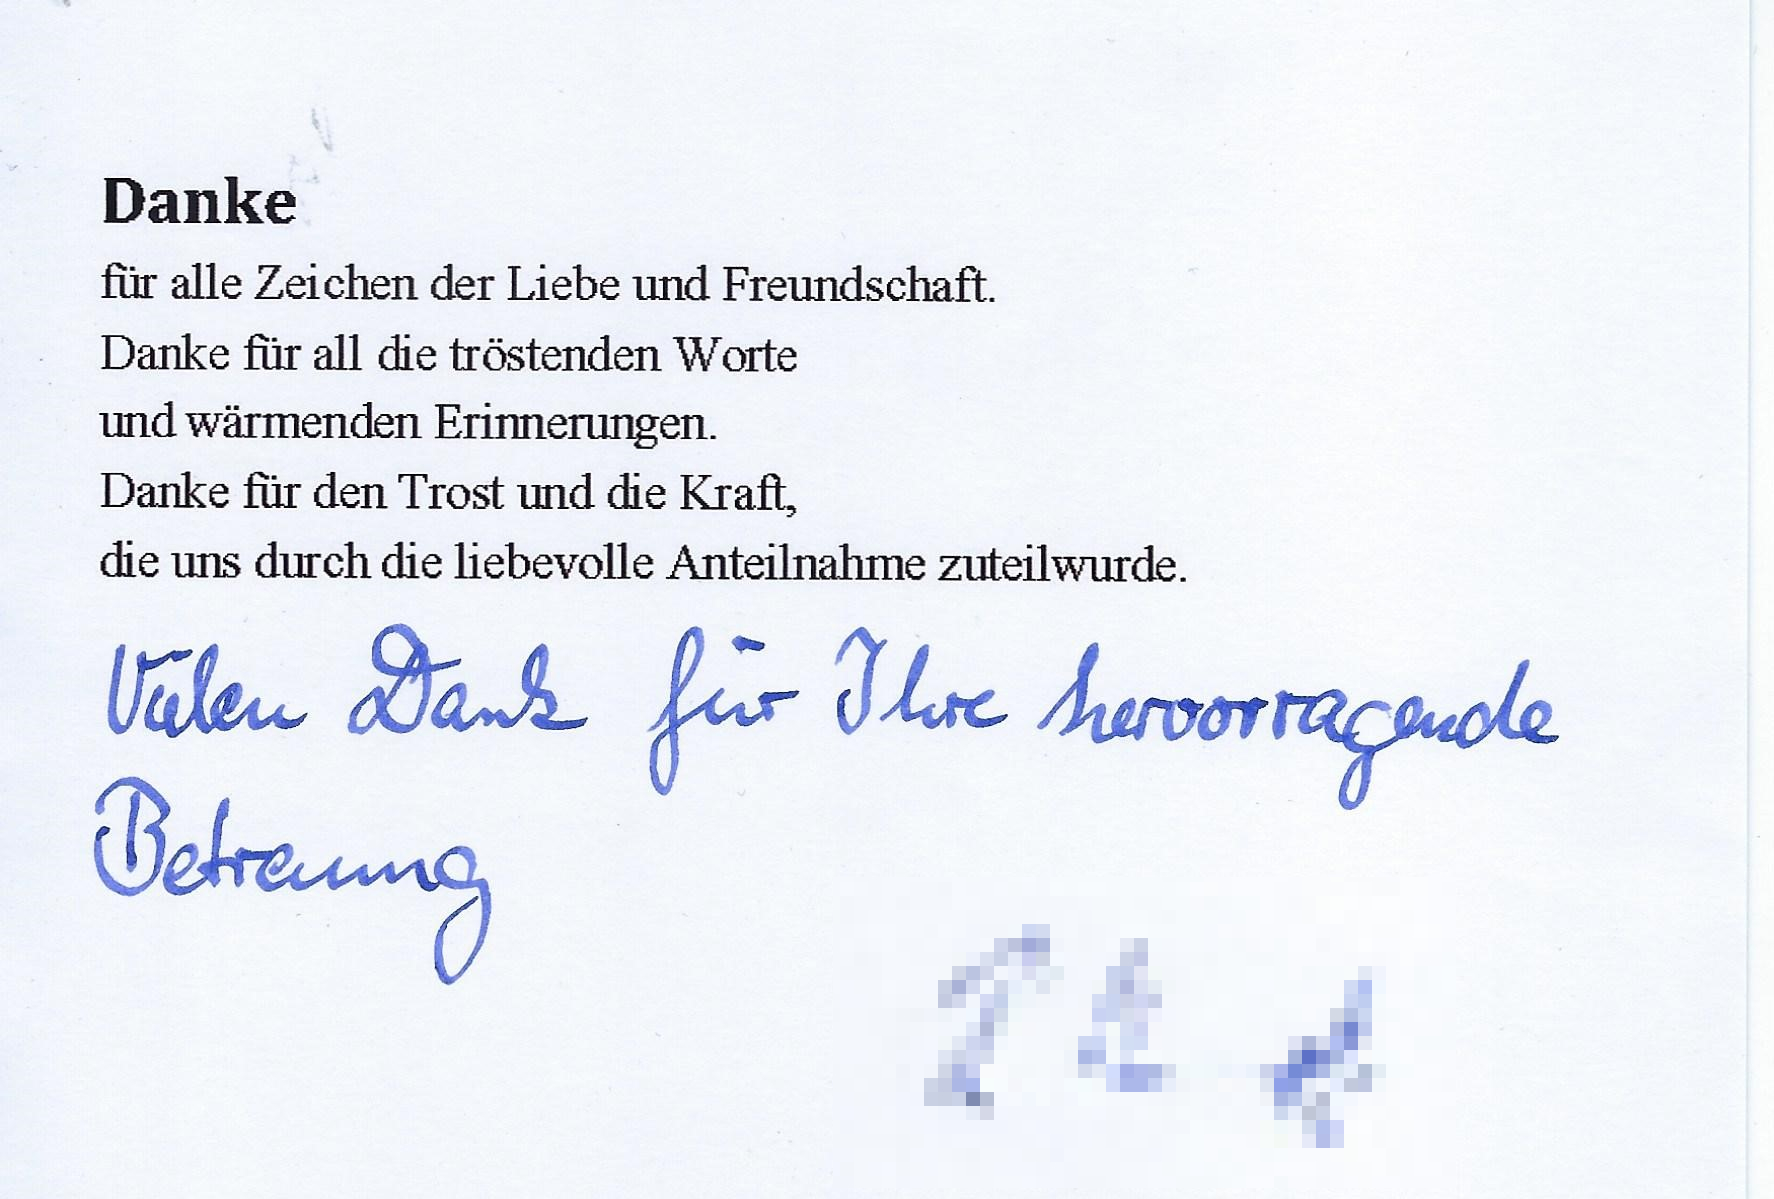 Danke
für alle Zeichen der Liebe und Freundschaft.
Danke für all die tröstenden Worte
und wärmenden Erinnerungen.
Danke für den Trost und die Kraft,
die uns durch die liebevolle Anteilnahme zuteilwurde.
Vielen Dank für Ihre hervorragende
Betreuung